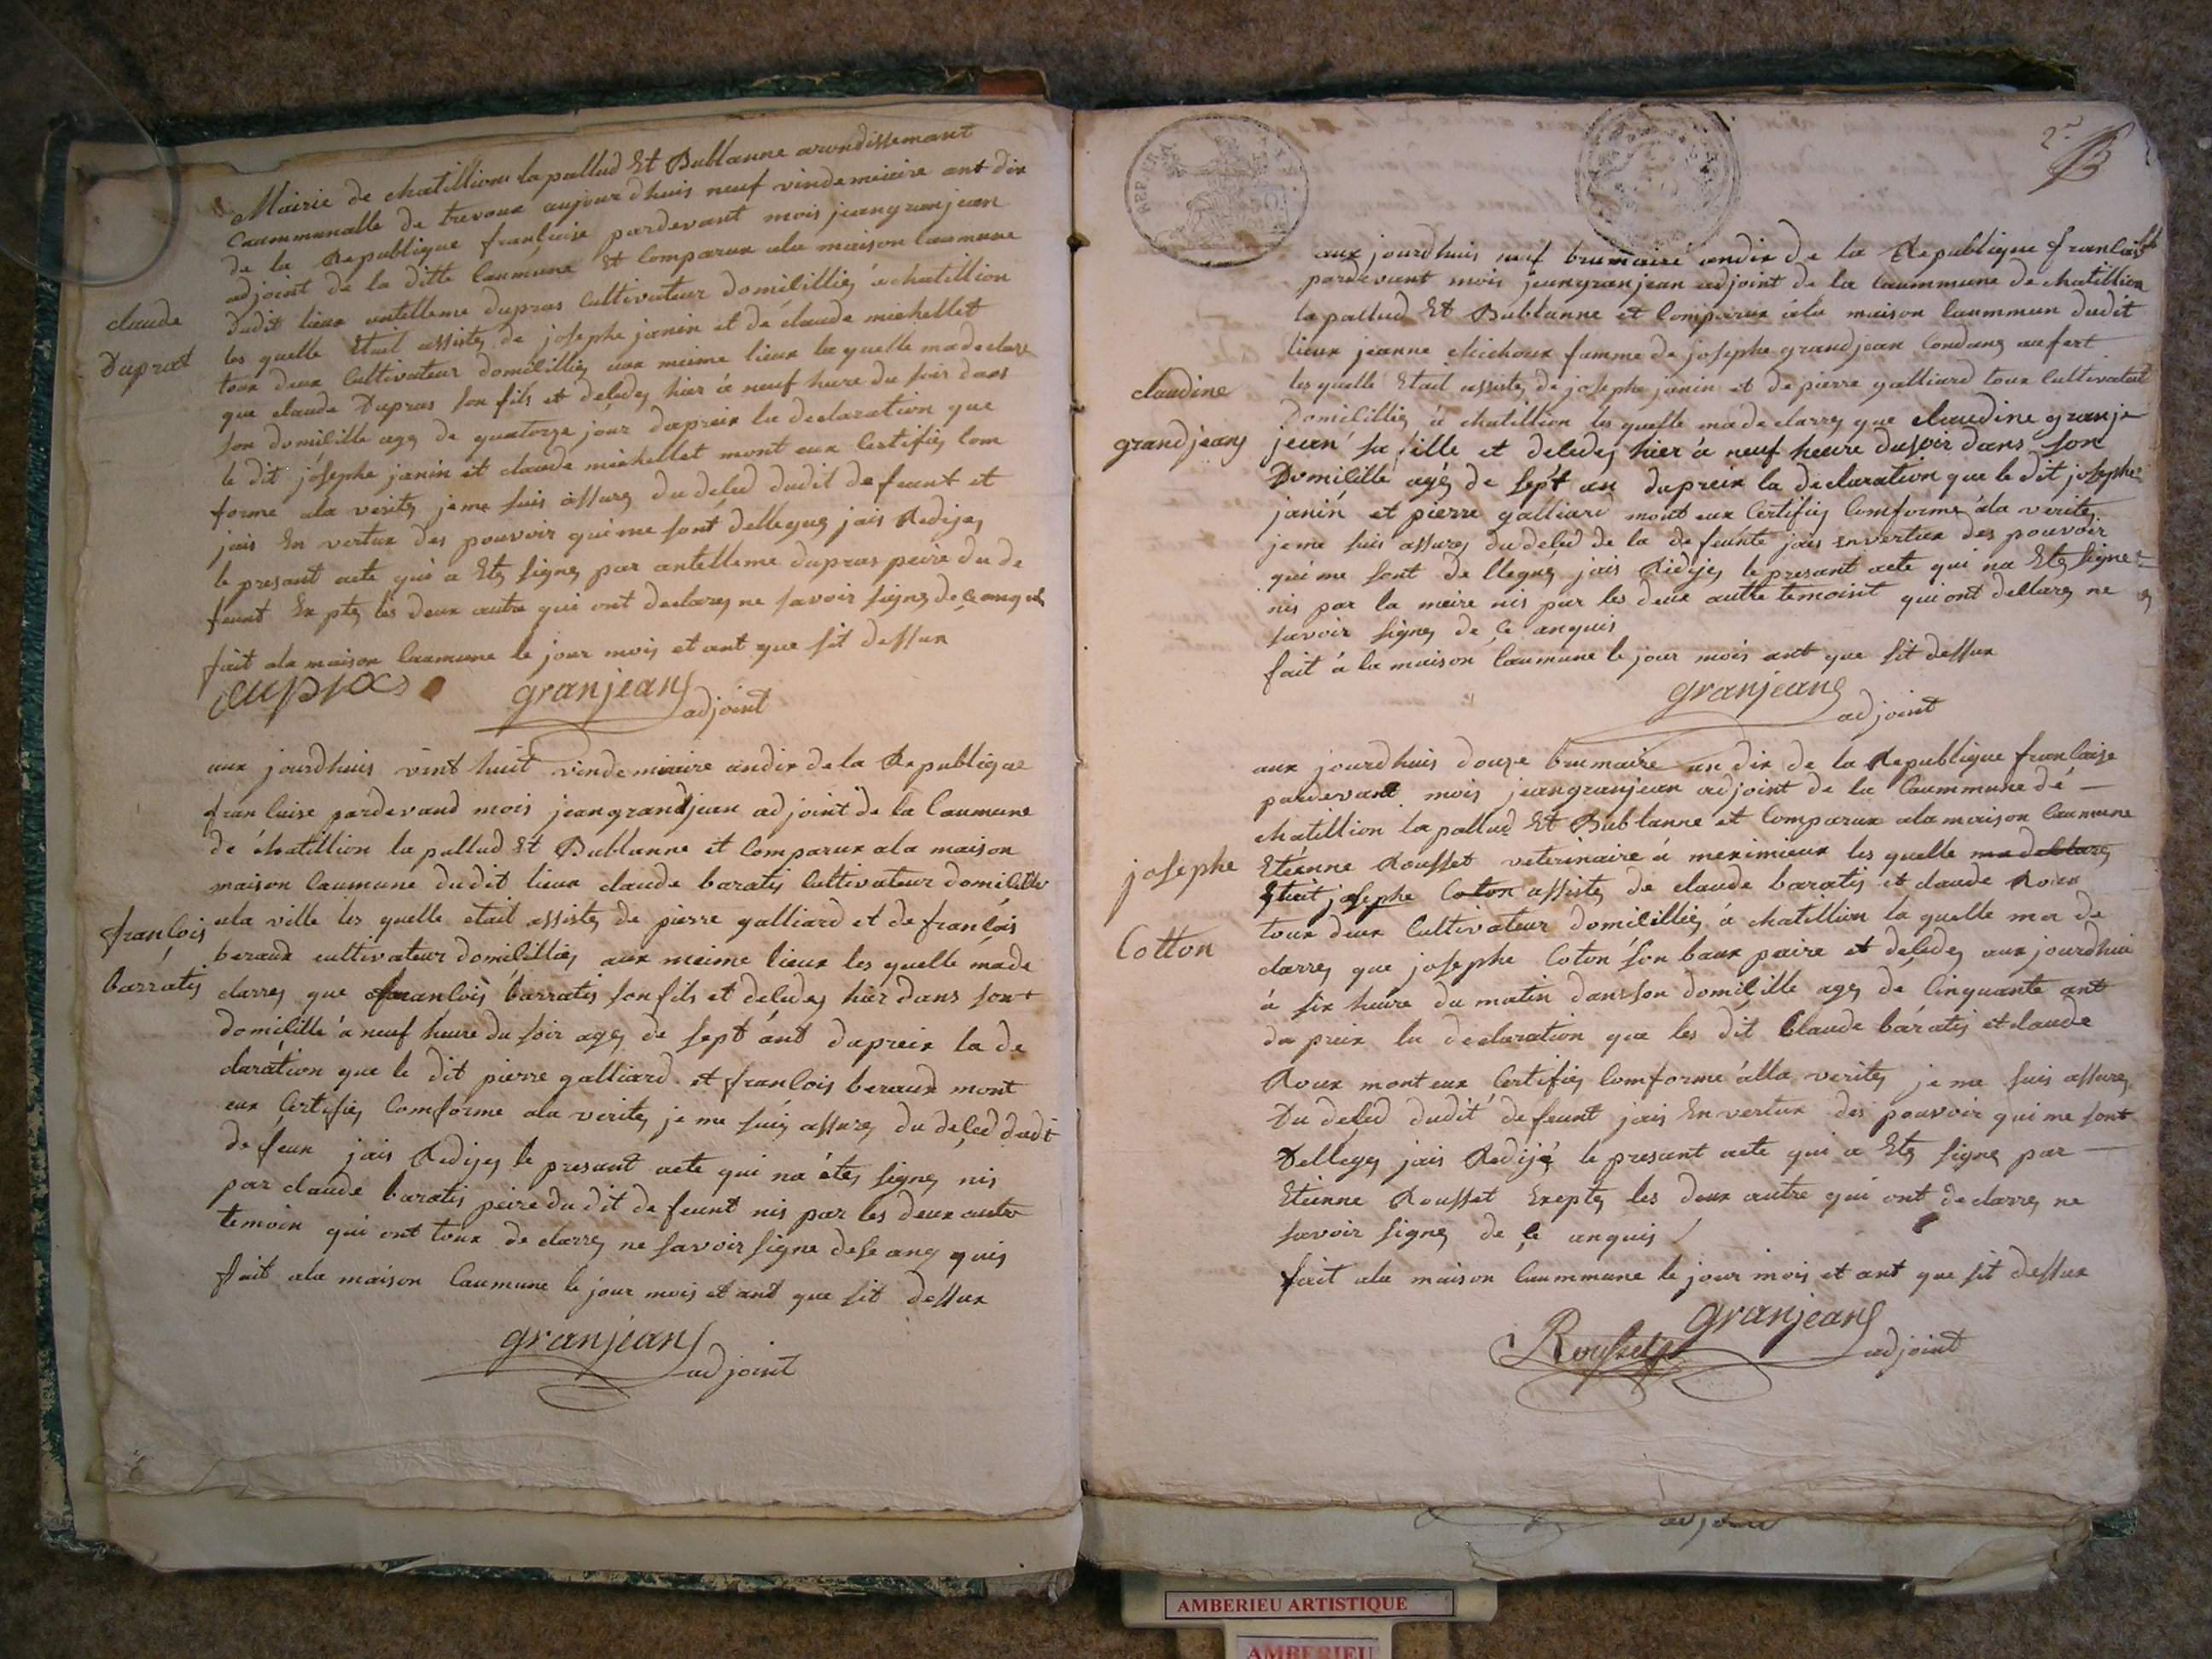 Mairie de chatillion lapallud Et Bublanne arondissemant
Caummunalle de trevoux aujourdhuis neuf vindemiaire ant dix
de la Republique franlaise pardevant mois jeangranjean
adjoint de la ditte Caumune Et Comparux ala maison Caumune
dudit lieux antelleme dupras Cultivateur domilillies à chatillion
les quelle Etait assistes de josephe janin et de claude miehellet
toux deux Cultivateur domilillies aux meime lieux laquelle madeclare
que claude Dupras son fils et deledes hier à neuf hure du soir dans
son domilille ages de quatorze jour dapreix la declaration que
le dit josephe janin et claude miehellet mont eux Certifies Com
forme ala verites jeme suis assures du deled dudit defeunt et
jais En vertux des pouvoir quime sont dellegues jais Redijes
le presant acte qui a Etes signes par antelleme dupras peire du de
feunt Exptes les deux autre qui ont declares ne savoir signes de ce anquis
fait ala maison Caumune le jour mois et ant que sit dessux
claude
Duprat
dupras granjean
adjoint
aux jourdhuis vint huit vindemiaire andix de la Republique
franlaise pardevand mois jeangrandjean adjoint de la Caumune
de chatillion la pallud Et Bublanne et Comparux ala maison
maison Caumune dudit lieux claude baratis Cultivateur domilillie
ala ville les quelle etait assistes de pierre galliard et de franlois
beraud cultivateur domilillies aux meime lieux les quelle made
clarres que franlois barratis son fils et deledes hier dans son
domilille à neuf heure du soir ages de sept ant dapreix la de
claration que le dit pierre galliard et franlois beraud mont
eux Certifies Comforme ala verites je me suis assures du deled dudit
defeun jais Redijes le presant acte qui na étes signes nis
par claude baratis peire du dit defeunt nis par les deux autre
temoin qui ont toux declarres ne savoir signe dese anq quis
fait ala maison Caumune le jour mois et ant que sit dessux
franlois
barratis
granjean
adjoint
2e
aux jourdhuis neuf brumaire andix de la Republique franlaise
pardevant mois jeangranjean adjoint de la Caummune de chatillion
lapallud Et Bublanne et Comparux àla maison Caummun dudit
lieux jeanne chichoux famme de josephe grandjean Condanq aufert
les quelle Etait assistes de josephe janin et de pierre galliard toux Cultivateur
domilillies à chatillion les quelle madeclarres que claudine granje
jean sa fille et deledes hier à neuf heure dusoir dans son
Domilille agés de sept an dapreix la declaration que le dit josephe
janin et pierre galliard mont eux Certifies Comforme àla verites
jeme suis assures dudeled de la defeunte jais envertux des pouvoir
qui me sont dellegues jais Redijes le presant acte qui na Etes signes
nis par la meire nis par les deux autre temoint qui ont dellares ne
savoir signes de ce anquis
fait à la maison Caumune le jour mois ant que sit dessux
claudine
grandjean
granjean
adjoint
aux jourdhuis douze brumaire an dix de la Republique franlaise
pardevant mois jeangranjean adjoint de la Caummune dé
chatillion lapallud Et Bublanne et Comparux ala maison Caumune
Etienne Rousset veterinaire à meximieux les quelle madeclares
Etait josephe Coton assistes de claude baratis et claude Roux
toux deux Cultivateur domilillies à chatillion la quelle ma de
clarres que josephe Coton son baux paire et deledes aux jourdhui
à six heure du matin dans son domilille ages de Cinquante ant
dapreix la declaration que les dit Claude baratis et claude
Roux mont eux Certifies Comforme àlla verites je me suis assures
Du deled dudit defeunt jais En vertux des pouvoir qui me sont
Delleges jais Redijé le presant acte qui a Etes signes par
Etienne Rousset Exeptes les deux autre qui ont declarres ne
savoir signes de ce anquis
fait ala maison Caummune le jour mois et ant que sit dessux
josephe
Cotton
granjean
Rousset adjoint
adjoint
AMBERIEU ARTISTIQUE
AMBERIEU